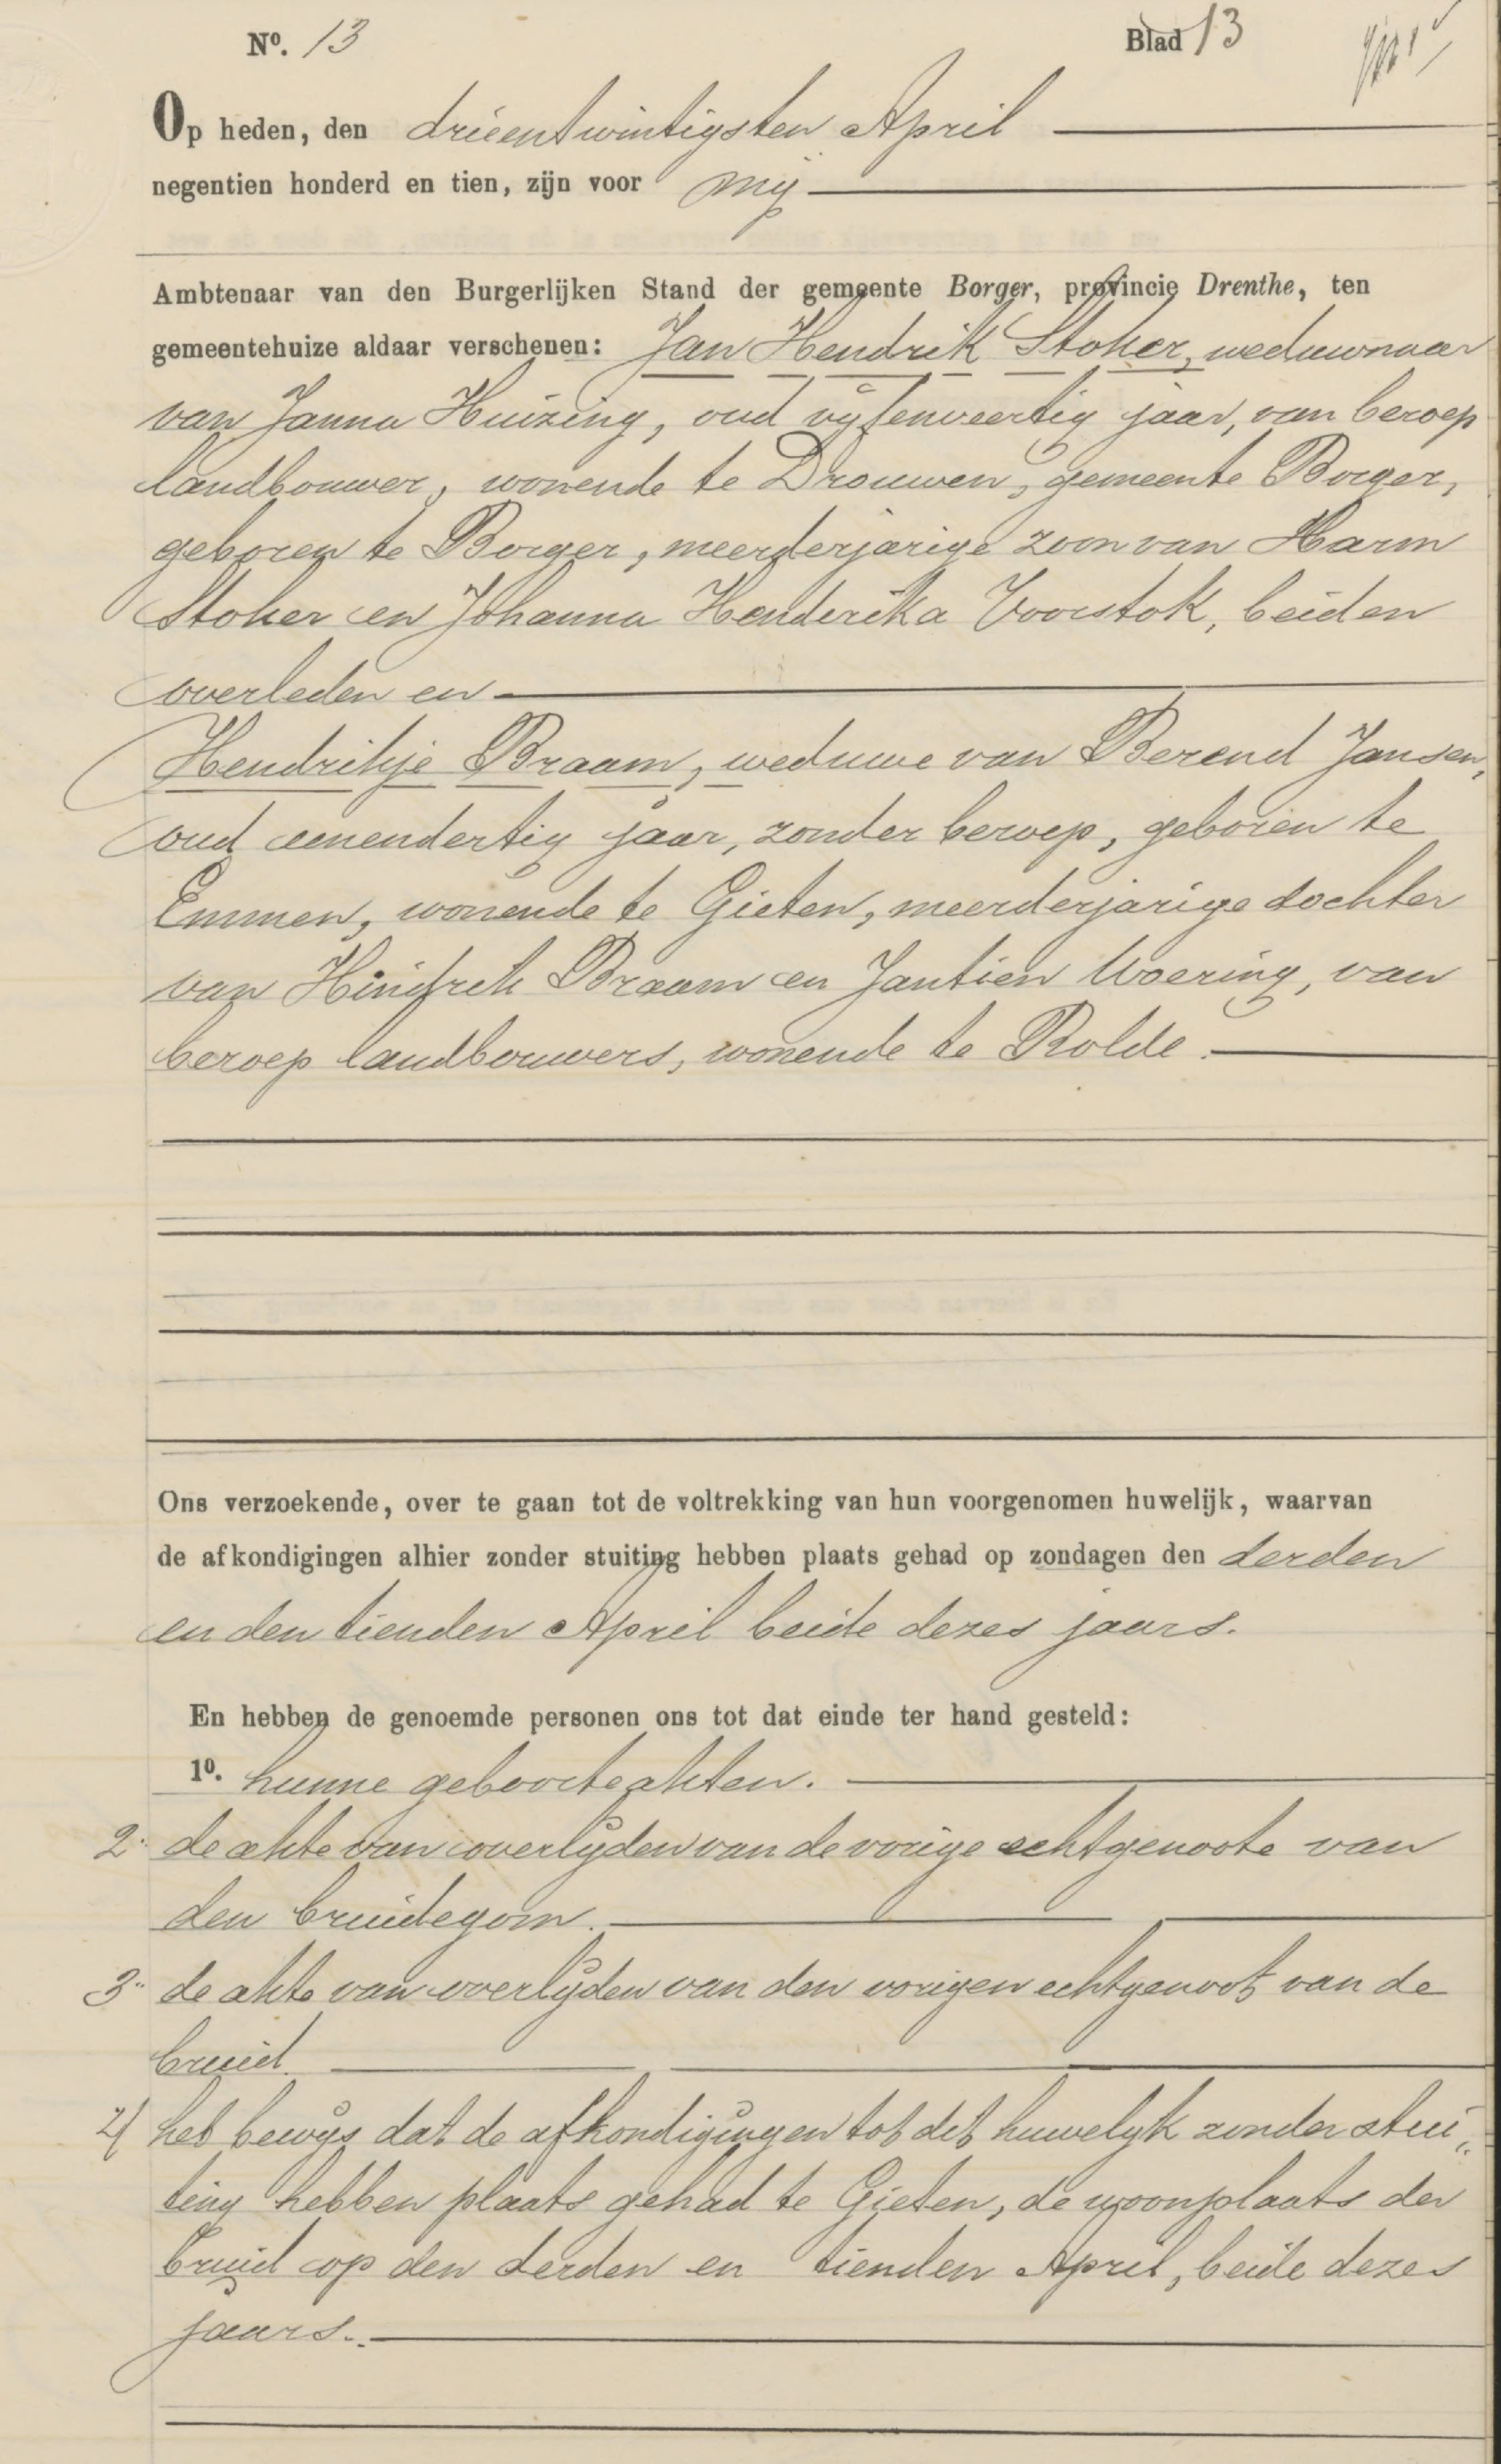 Nº. 13
Blad 13
Op heden, den drieentwintigsten April
negentien honderd en tien, zijn voor mij
Ambtenaar van den Burgerlijken Stand der gemeente Borger, provincie Drenthe, ten
gemeentehuize aldaar verschenen: Jan Hendrik Stoker, weduwnaar
van Janna Huizing, oud vijfenveertig jaar, van beroep
landbouwer, wonende te Drouwen, gemeente Borger,
geboren te Borger, meerderjarige zoon van Harm
Stoker en Johanna Henderika Voorstok, beiden
overleden en
Hendrikje Braam, weduwe van Berend Jansen,
oud eenendertig jaar, zonder beroep, geboren te
Emmen, wonende te Gieten, meerderjarige dochter
van Hindrek Braam en Jantien Woering, van
beroep landbouwers, wonende te Rolde.
Ons verzoekende, over te gaan tot de voltrekking van hun voorgenomen huwelijk, waarvan
de afkondigingen alhier zonder stuiting hebben plaats gehad op zondagen den derden
en den tienden April beide dezes jaars.
En hebben de genoemde personen ons tot dat einde ter hand gesteld:
1º. hunne geboorteakten.
2. de akte van overlijden van de vorige echtgenoote van
den bruidegom.
3. de akte van overlijden van den vorigen echtgenoot van de
bruid.
4 het bewijs dat de afkondigingen tot dit huwelijk zonder stui„
ting hebben plaats gehad te Gieten, de woonplaats der
bruid op den derden en tienden April, beide dezes
jaars.